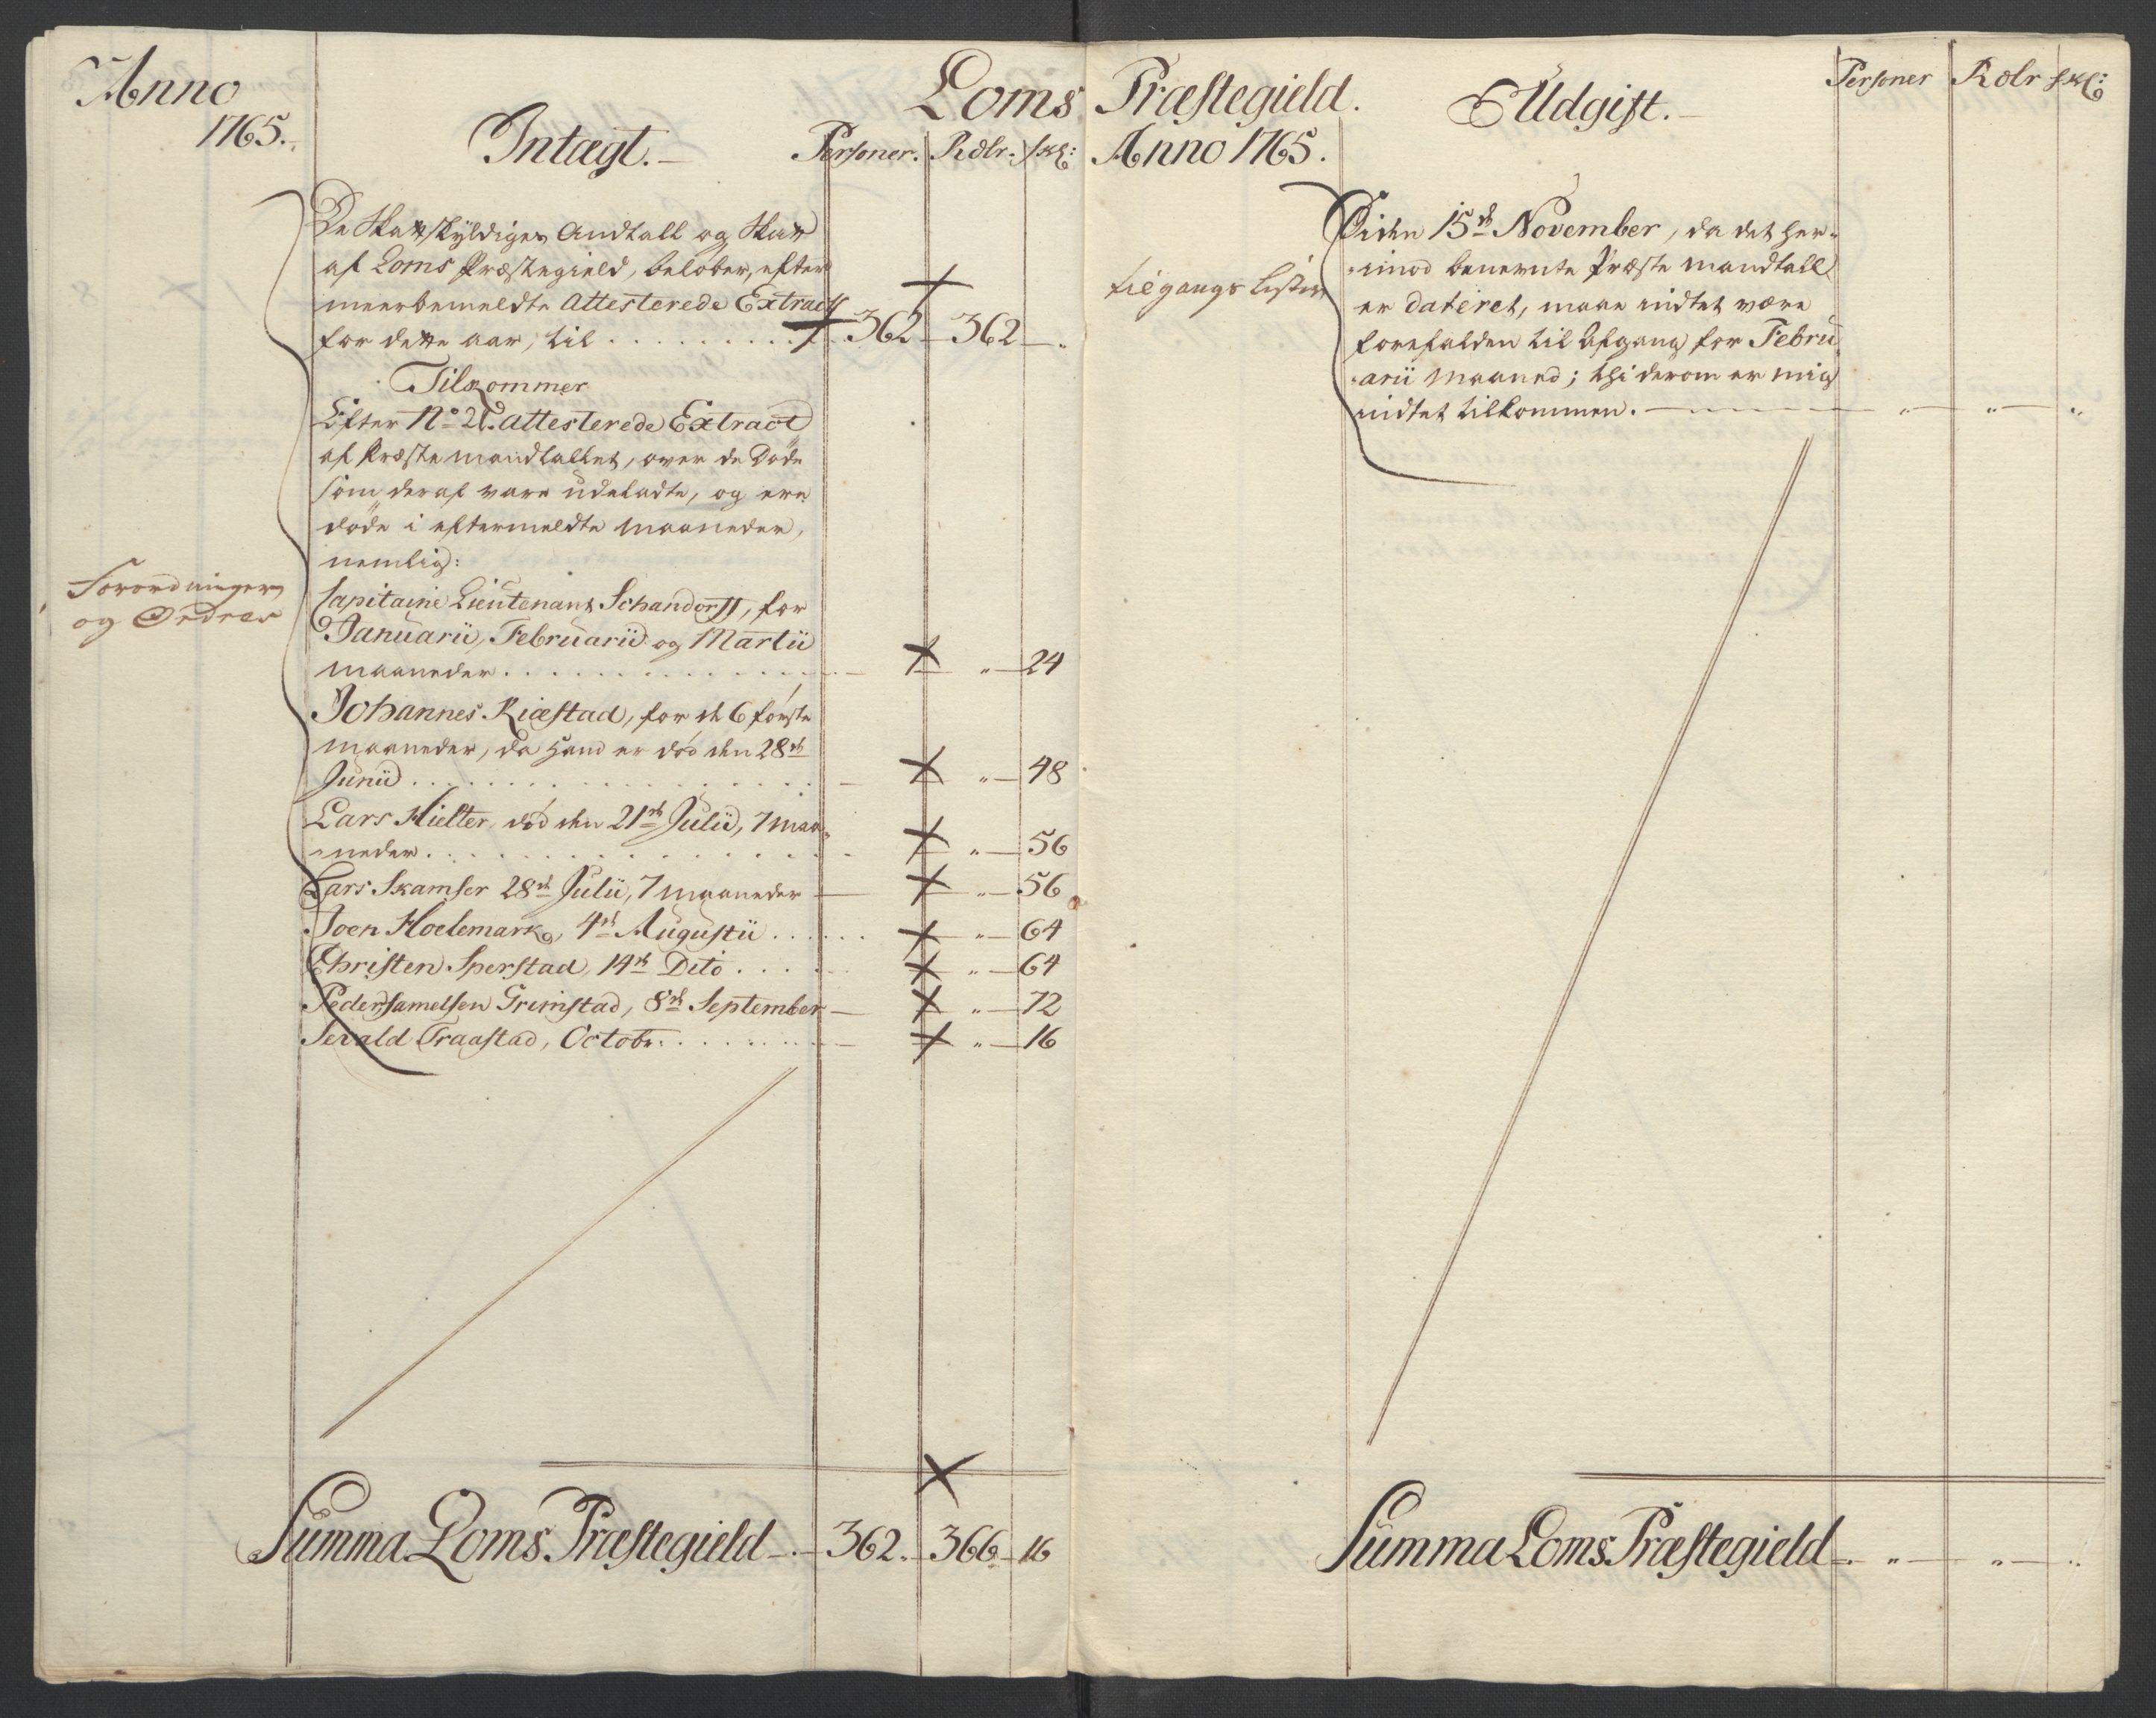 Anno
1765.
Loms
Intægt.
Personer. Rdlr. skl:
De Skattskyldiges Andtall og Skatt
af Loms Præstegield, beløber, efter
meerbemeldte Attesterede Extract
for dette aar, til . . . . . . . . . 362 – 362 – .
Tilkommer
Efter No 21. attesterede Extract
af Præste mandtallet, over de Døde
som deraf vare udeladte, og ere
døde i eftermeldte Maaneder,
nemlig:
Forordninger
og Ordres
Capitaine Lieutenant Schandorff, for
Januarii, Februarii og Martii
Maaneder . . . . . . . . . . . . „ – 24
Johannes Kiæstad, for de 6 første
Maaneder, da Hand er død den 28de
Junii . . . . . . . . . . . . . . „ – 48
Lars Hielter, død den 21de Julii, 7 maa„
„neder . . . . . . . . . . . . . „ – 56
Lars Skamser 28de Julii, 7 Maaneder – „ – 56
Joen Hoelemark, 4de Augustii . . . . . . „ – 64
Christen Sperstad, 14de Dito . . . . „ – 64
Peder Samelsen Grimstad, 8de September – „ – 72
Jerald Traastad, Octobr: . . . . . . . . – „ – 16
Summa Loms Præstegield – . – 362. – 366 – 16
Præstegield.
Anno 1765.
Udgift.
Personer Rdlr skl:
Siden 15de November, da det her„
„imod benevnte Præste Mandtall
tilgangs Listen
er dateret, maae intet være
forefalden til Afgang for Febru
„arii Maaned; thi derom er mig
intet tilkommen. – „ – „ – „
Summa Loms Præstegield – . „ – „ – ..